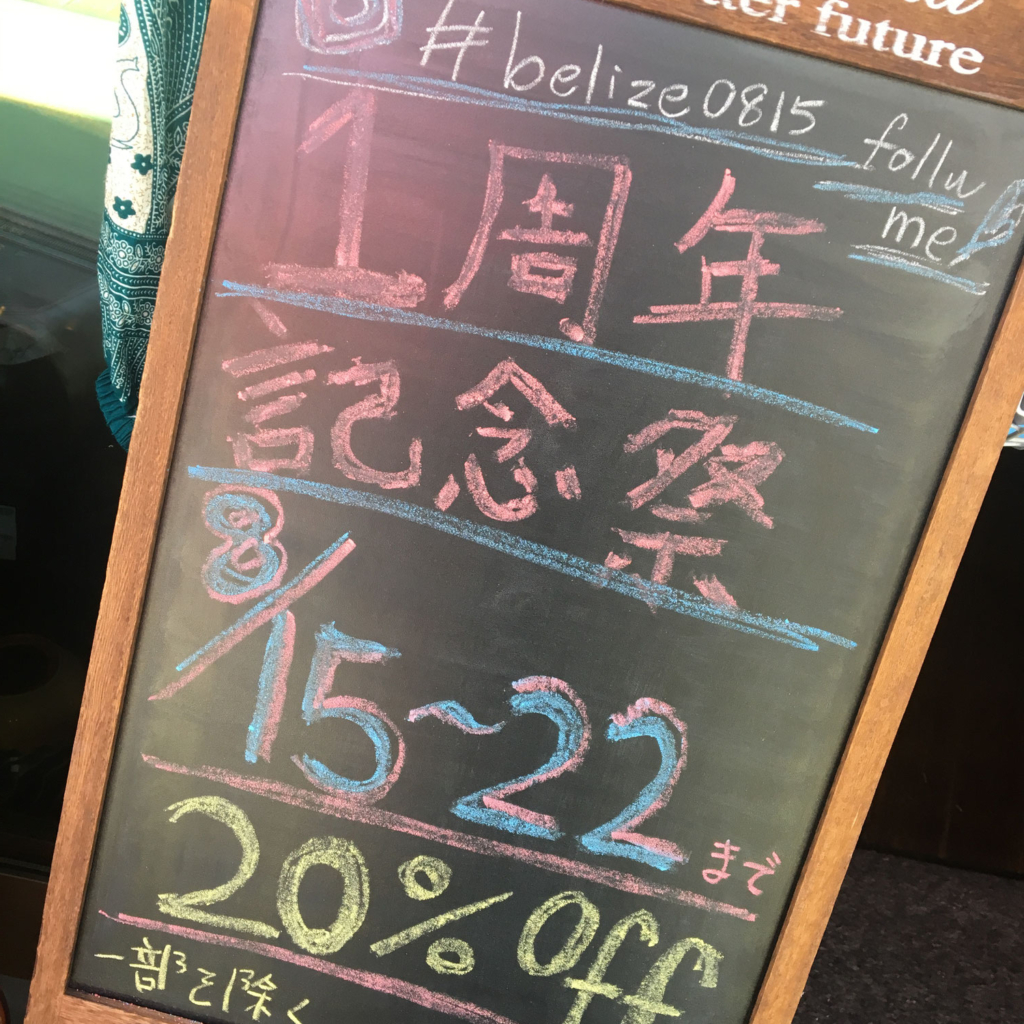 future
#belize0815
follow
me
1周年
記念祭
8/15~22まで
20%Off
一部を除く